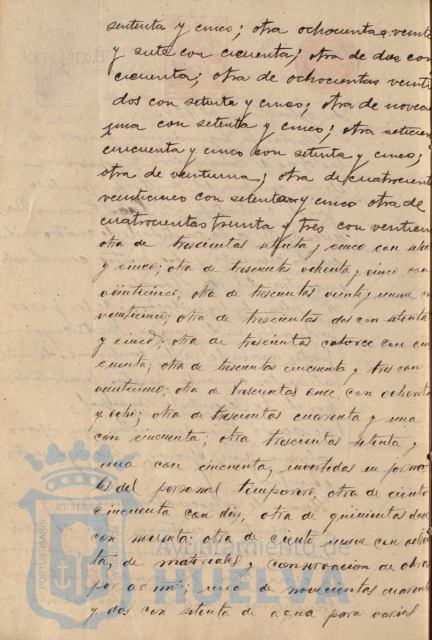 setenta y cinco; otra ochocientas veinte
y siete con cincuenta; otra de dos con
cincuenta; otra de ochocientas veinti
dos con setenta y cinco; otra de noven
con setenta y cinco; otra setecien
cincuenta y cinco con setenta y cinco;
otra de veintiuna; otra de cuatrocient
veinticinco con setenta y cinco otra de
cuatrocientas treinta y tres con veinticin
otra de trescientas setenta y cinco con seten
y cinco; otra de trescientas ochenta y cinco con
veinticinco; otra de trescientas veinte y nueve con
veinticinco; otra de trescientas dos con setenta
y cinco; otra de trescientas catorce con cin
cuenta; otra de trescientas cincuenta y tres con
veinticinco; otra de trescientas once con ochenta
y ocho; otra de trescientas cuarenta y una
con cincuenta; otra trescientas setenta y
una con cincuenta, invertidas en jorna
les del personal temporero, otra de ciento
cincuenta con diez, otra de quinientas doce
con noventa; otra de ciento nueve con
de materiales y conservacion de obras
por admi; una de novecientas cuarenta
y dos con setenta de agua para varios
Ayuntamiento de
HUELVA